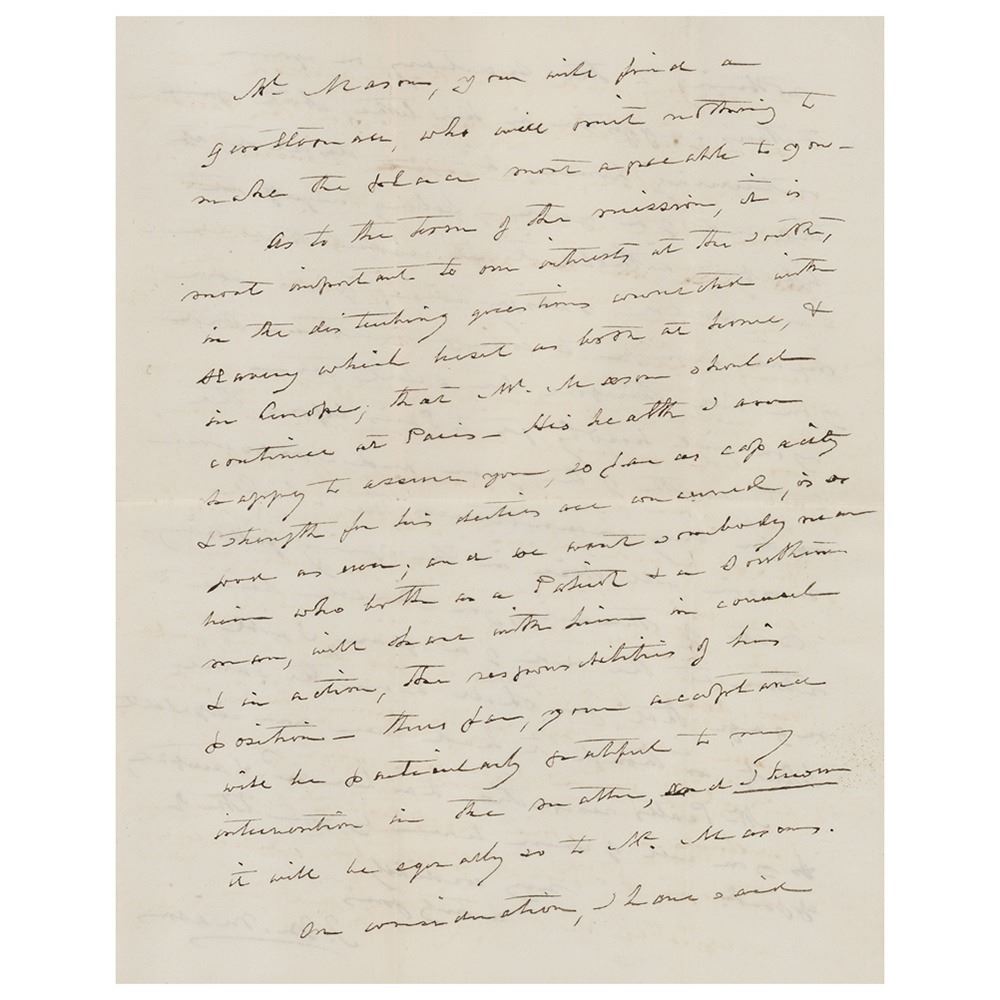 Mr Mason, you will find a
gentleman, who will omit nothing to
make the place most agreeable to you -
As to the term of the mission, it is
most important to our interests at the South,
in the disturbing questions connected with
slavery which beset us both at home, &
in Europe, that Mr. Mason should
continue at Paris - His health I am
happy to assure you, so far as capacity
& strength for his duties are concerned, is as
good as ever; and we want somebody near
him who both as a Patriot & a Southern
man, will share with him in counsel
& in action, the responsibilities of his
position - Thus far, your acceptance
will be particularly grateful to my
intervention in the matter, and I know
it will be equally so to Mr. Masons.
In consideration, I have said